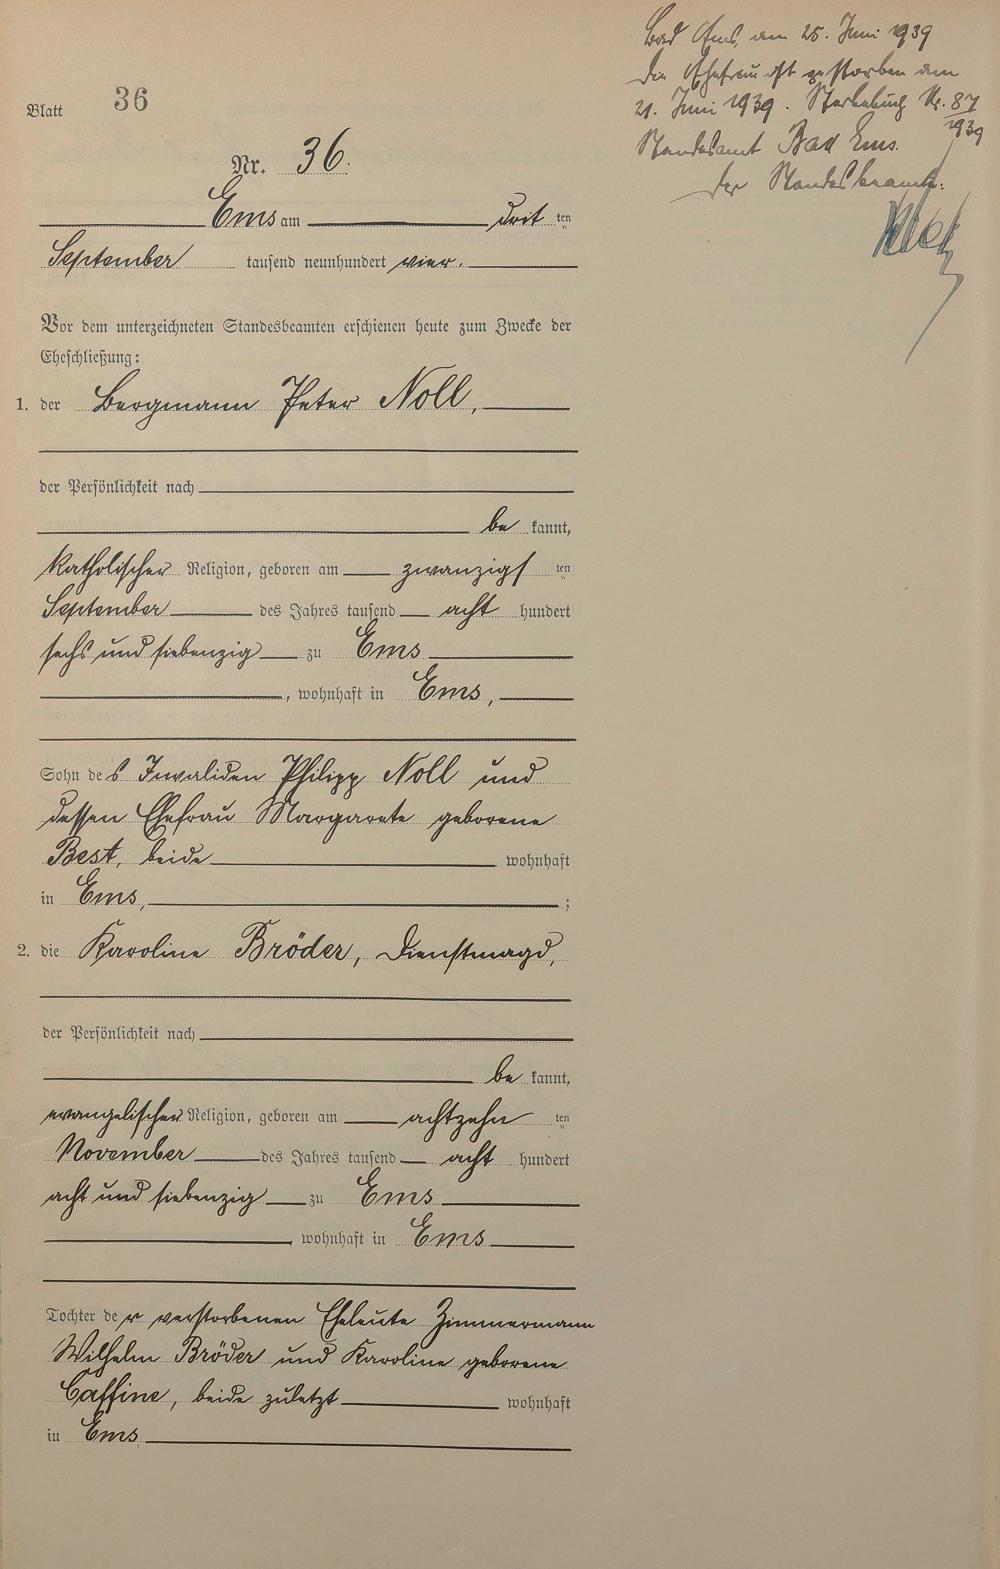 Blatt 36
Nr. 36.
Ems am dritten
September tausend neunhundert vier.
Vor dem unterzeichneten Standesbeamten erschienen heute zum Zwecke der
Eheschließung:
1. der Bergmann Peter Noll,
der Persönlichkeit nach
be kannt,
katholischer Religion, geboren am zwanzigsten
September des Jahres tausend acht hundert
sechs und siebenzig zu Ems
, wohnhaft in Ems,
Sohn des Invaliden Philipp Noll und
dessen Ehefrau Margarete geborene
Best, beide wohnhaft
in Ems, ;
2. die Karoline Bröder, Dienstmagd,
der Persönlichkeit nach
be kannt,
evangelischer Religion, geboren am achtzehn ten
November des Jahres tausend acht hundert
acht und siebenzig zu Ems
, wohnhaft in Ems
Tochter der verstorbenen Eheleute Zimmermann
Wilhelm Bröder und Karoline geborene
Caffine, beide zuletzt wohnhaft
in Ems
Bad Ems, am 25. Juni 1939
Die Ehefrau ist gestorben am
21. Juni 1939. Sterbebuch Nr. 87/1939
Standesamt Bad Ems.
Der Standesbeamte: